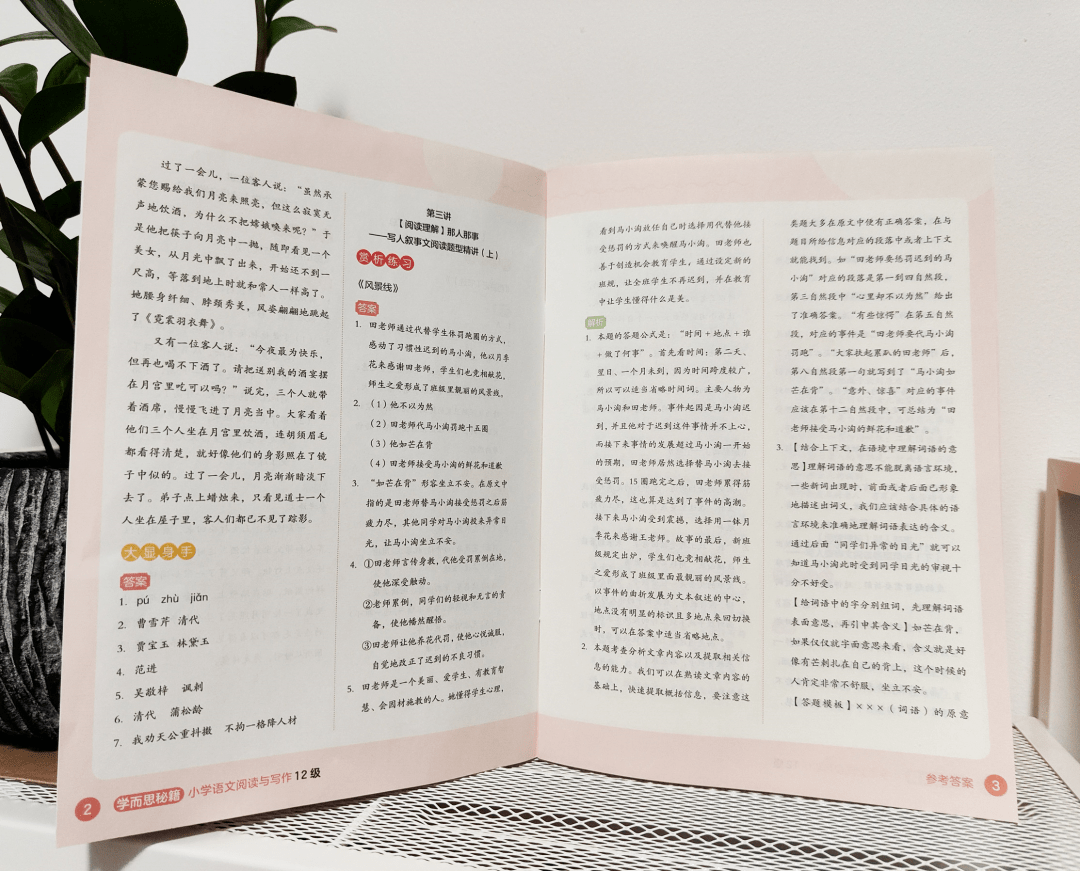 过了一会儿，一位客人说：“虽然承
蒙您赐给我们月亮来照亮，但这么寂寞无
声地饮酒，为什么不把嫦娥唤来呢？”于
是他把筷子向月亮中一抛，随即看见一个
美女，从月光中飘了出来，开始还不到一
尺高，等落到地上时就和常人一样高了。
她腰身纤细、脖颈秀美，风姿翩翩地跳起
了《霓裳羽衣舞》。
又有一位客人说：“今夜最为快乐，
但再也喝不下酒了。请把送别我的酒宴摆
在月宫里吃可以吗？”说完，三个人就带
着酒席，慢慢飞进了月亮当中。大家看着
他们三个人坐在月宫里饮酒，连胡须眉毛
都看得清楚，就好像他们的身影照在了镜
子中似的。过了一会儿，月亮渐渐暗淡下
去了。弟子点上蜡烛来，只看见道士一个
人坐在屋子里，客人们都已不见了踪影。
大显身手
答案
1. pú zhù jiān
2. 曹雪芹 清代
3. 贾宝玉 林黛玉
4. 范进
5. 吴敬梓 讽刺
6. 清代 蒲松龄
7. 我劝天公重抖擞 不拘一格降人材
2 学而思秘籍 小学语文阅读与写作 12 级
第三讲
【阅读理解】那人那事
——写人叙事文阅读题型精讲（上）
赏析练习
《风景线》
答案
1. 田老师通过代替学生体罚跑圈的方式，
感动了习惯性迟到的马小淘，他以月季
花来感谢田老师，学生们也竞相献花，
师生之爱形成了班级里靓丽的风景线。
2. （1）他不以为然
（2）田老师代马小淘罚跑十五圈
（3）他如芒在背
（4）田老师接受马小淘的鲜花和道歉
3. “如芒在背”形容坐立不安。在原文中
指的是田老师替马小淘接受惩罚之后筋
疲力尽，其他同学对马小淘投来异常目
光，让马小淘坐立不安。
4. ①田老师言传身教，代他受罚累倒在地，
使他深受触动。
②老师累倒，同学们的轻视和无言的责
备，使他幡然醒悟。
③田老师让他养花代罚，使他心悦诚服，
自觉地改正了迟到的不良习惯。
5. 田老师是一个美丽、爱学生、有教育智
慧、会因材施教的人。她懂得学生心理，
看到马小淘放任自己时选择用代替他接
受惩罚的方式来唤醒马小淘。田老师也
善于创造机会教育学生，通过设定新的
班规，让全班学生不再迟到，并在教育
中让学生懂得什么是美。
解析
1. 本题的答题公式是：“时间＋地点＋谁
＋做了何事”。首先看时间：第二天、
翌日、一个月未到，因为时间跨度较广，
所以可以适当省略时间词。主要人物为
马小淘和田老师。事件起因是马小淘迟
到，并且他对于迟到这件事情并不上心，
而接下来事情的发展超过马小淘一开始
的预期，田老师居然选择替马小淘去接
受惩罚。15 圈跑完之后，田老师累得筋
疲力尽，这也算是达到了事件的高潮。
接下来马小淘受到震撼，选择用一钵月
季花来感谢王老师。故事的最后，新班
级规定出炉，学生们也竞相献花，师生
之爱形成了班级里面最靓丽的风景线。
以事件的曲折发展为文本叙述的中心，
地点没有明显的标识且多地点来回切换
时，可以在答案中适当省略地点。
2. 本题考查分析文章内容以及提取相关信
息的能力。我们可以在熟读文章内容的
基础上，快速提取概括信息，要注意这
类题大多在原文中便有正确答案，在与
题目所给信息对应的段落中或者上下文
就能找到。如“田老师要惩罚迟到的马
小淘”对应的段落是第一到四自然段，
第三自然段中“心里却不以为然”给出
了准确答案。“有些惊愕”在第五自然
段，对应的事件是“田老师要代马小淘
罚跑”。“大家扶起累趴的田老师”后，
第八自然段第一句就写到了“马小淘如
芒在背”。“意外、惊喜”对应的事件
应该在第十二自然段中，可总结为“田
老师接受马小淘的鲜花和道歉”。
3. 【结合上下文，在语境中理解词语的意
思】理解词语的意思不能脱离语言环境，
一些新词出现时，前面或者后面已形象
地描述出词义，我们应该结合具体的语
言环境来准确地理解词语表达的含义。
通过后面“同学们异常的目光”就可以
知道马小淘此时受到同学目光的审视十
分不好受。
【给词语中的字分别组词，先理解词语
表面意思，再引申其含义】如芒在背，
如果仅仅就字面意思来看，含义就是好
像有芒刺扎在自己的背上，这个时候的
人肯定非常不舒服，坐立不安。
【答题模板】×××（词语）的原意
参考答案 3